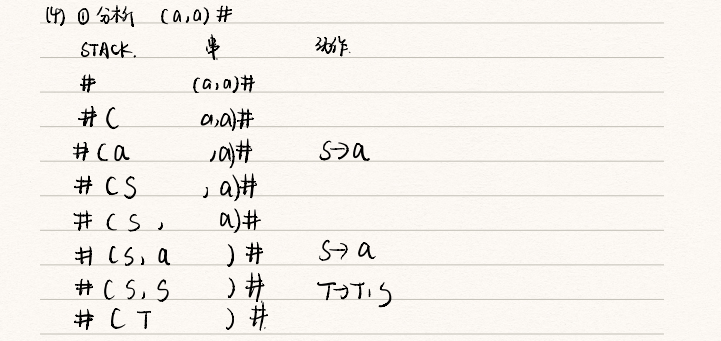 (4) ① 分析 (a,a)#
STACK. 串 动作
# (a,a)#
#( a,a)#
#(a ,a)# S→a
#(S ,a)#
#(S, a)#
#(S,a )# S→a
#(S,S )# T→T,S
#(T )#